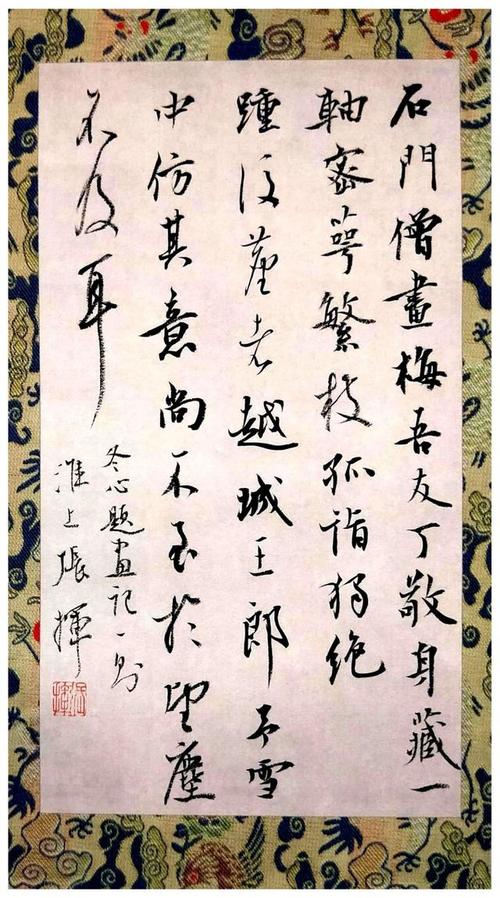 石門僧畫梅吾友丁敬身藏一
軸密萼繁枝孤詣獨絶
踵後塵者越城王郎予雪
中仿其意尚不至於望塵
不及耳
冬心題畫記一則
淮上張揮